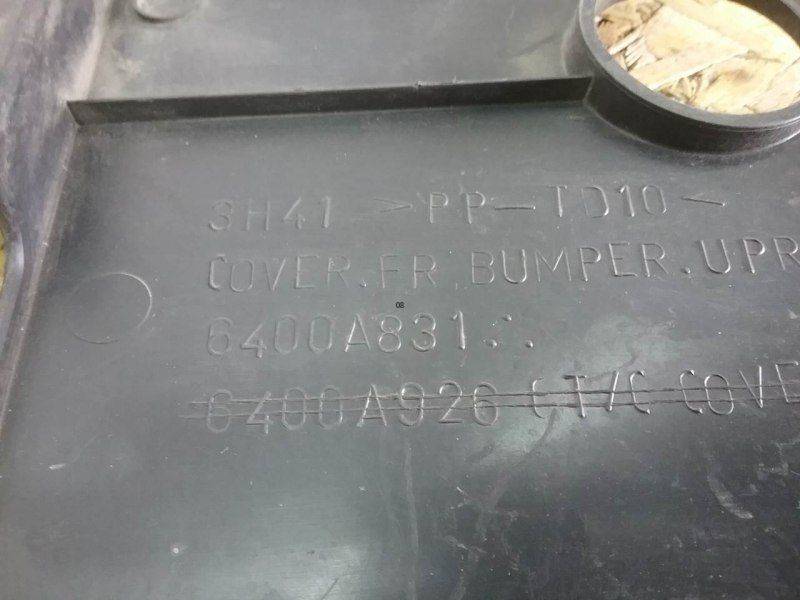 3H41 >PP-TD10<
COVER.FR BUMPER.UPR
08
6400A831
6400A926 (T/C COVE